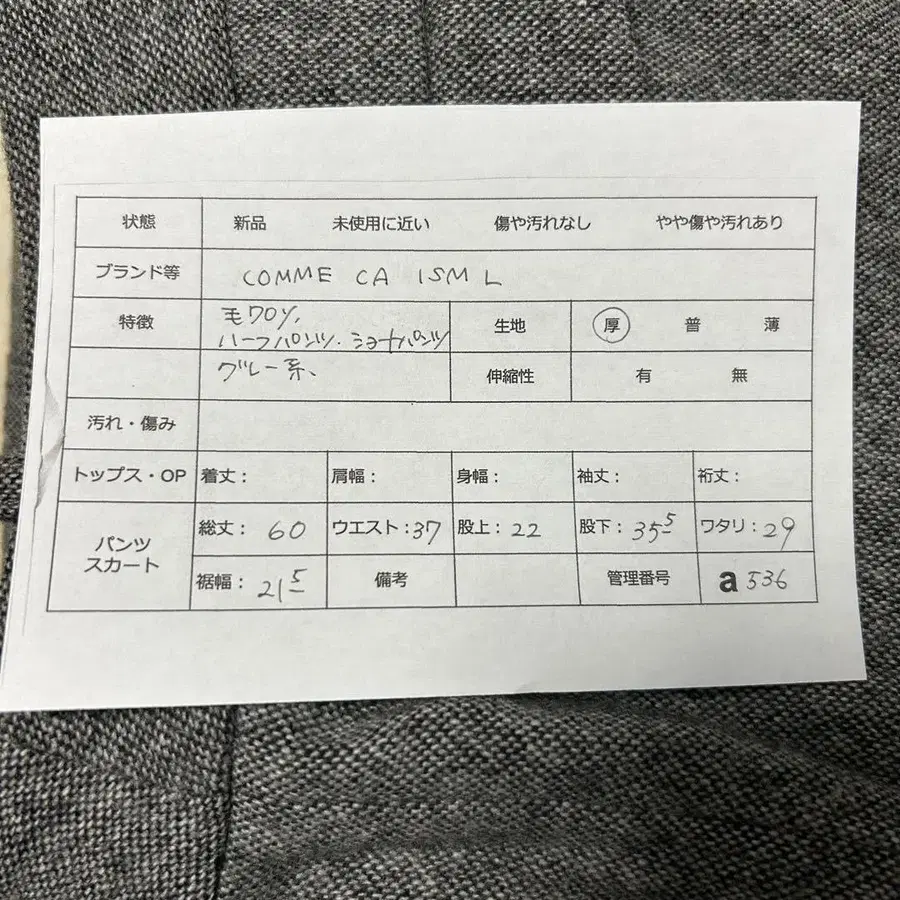 状態 新品 未使用に近い 傷や汚れなし やや傷や汚れあり
ブランド等 COMME CA ISM L
特徴 毛70%, 生地 厚 普 薄
ハーフパンツ. ショートパンツ
グレー系、 伸縮性 有 無
汚れ・傷み
トップス・OP 着丈: 肩幅: 身幅: 袖丈: 裄丈:
パンツ スカート 総丈: 60 ウエスト:37 股上:22 股下:35 5 ワタリ:29
裾幅: 21 5 備考 管理番号 a 536